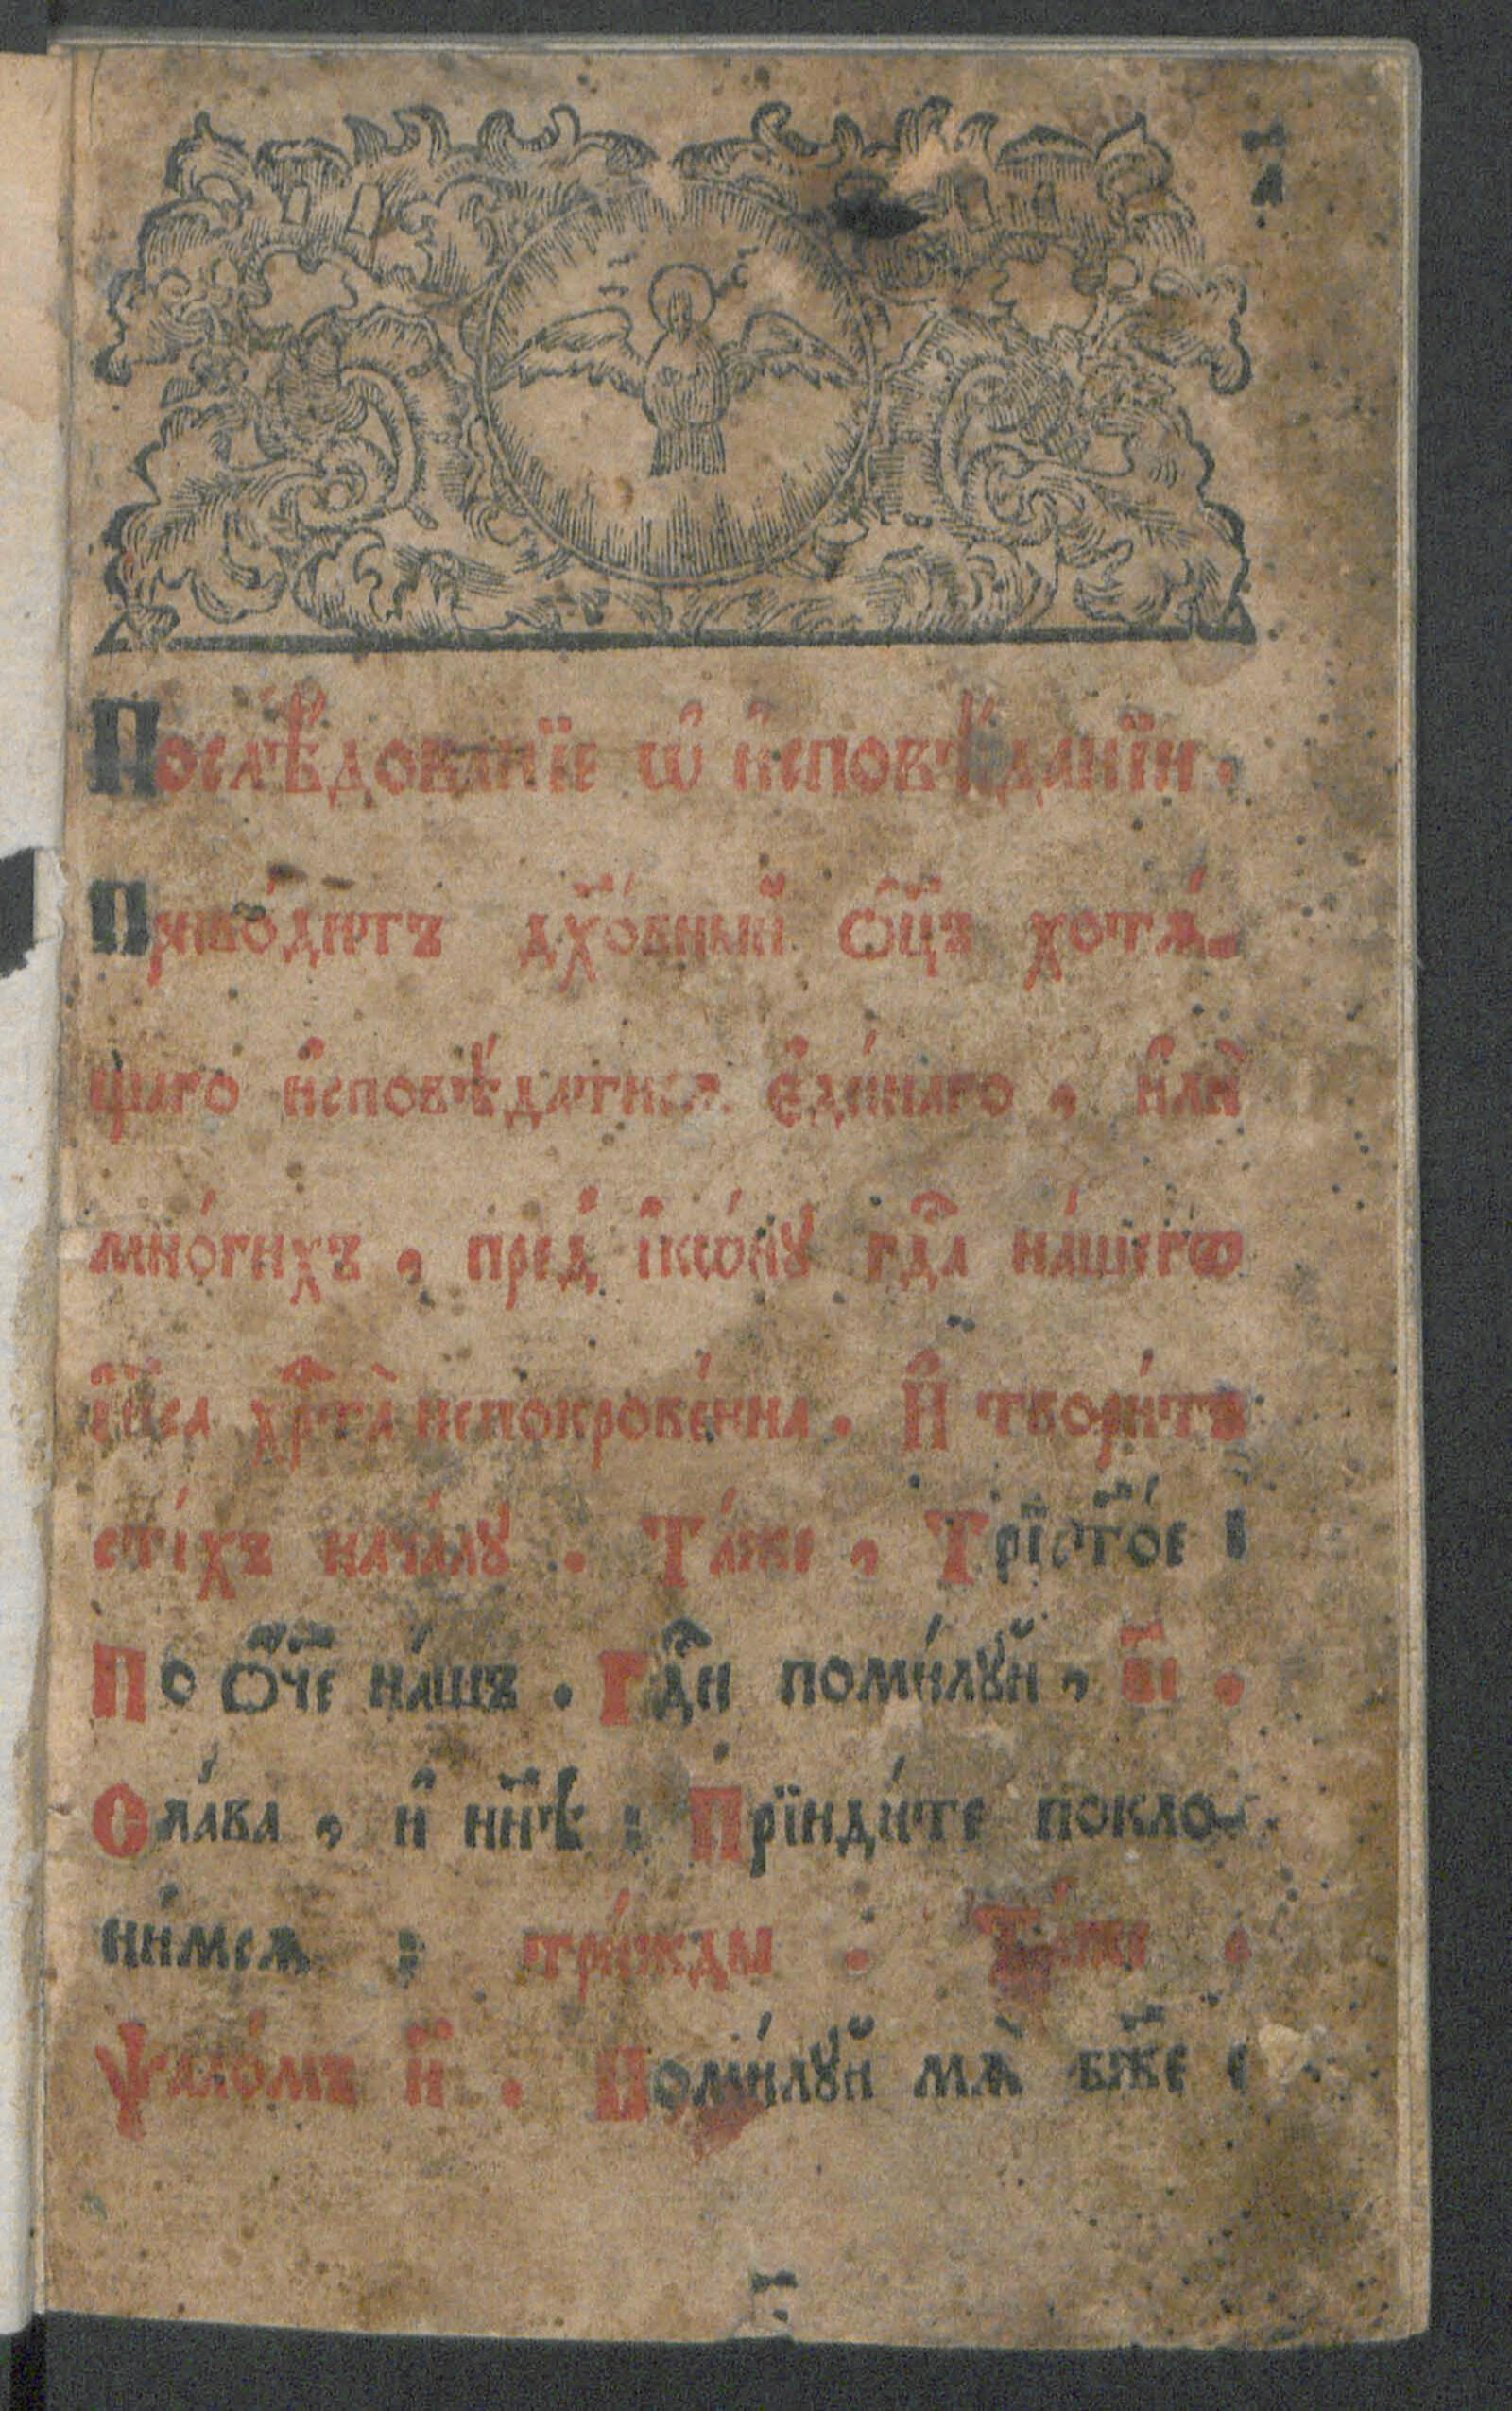 а҃
Послѣ́дованїе ѡ҆ и҆сповѣ́данїи.
Приво́дитъ дх҃о́вный ѻ҆ц҃ъ хотѧ́-
щаго и҆сповѣ́датисѧ є҆ди́наго, и҆лѝ
мно́гихъ, пред̾ і҆кѡ́ну гдⷭ҇а на́шегѡ
і҆и҃са хрⷭ҇та̀ непокрове́нна. И҆ твори́тъ
сті́хъ нача́лу. Та́же, Трїст҃о́е:
По ѻ҆́ч҃е на́шъ. Гдⷭ҇и поми́луй, в҃і.
Сла́ва, и҆ нн҃ѣ: Прїиди́те покло-
ни́мсѧ: три́жды. Та́же.
Ѱало́мъ н҃. Поми́луй мѧ̀ бж҃е: